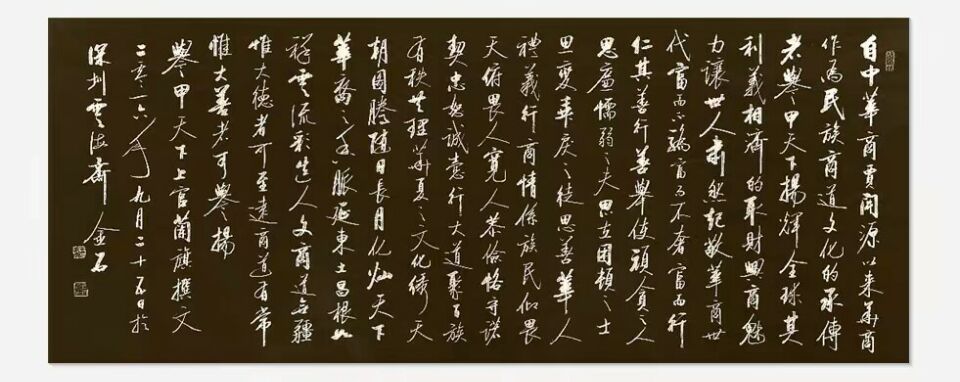 自中華商賈開源以来華商
作為民族商道文化的承傳
者譽甲天下揚輝全球其
利義相濟的取財興商魅
力讓世人肅然起敬華商世
代富而不驕富而不奢富而行
仁其善行善舉使頑貪之人
思廉懦弱之夫思立困頓之士
思變乖戾之徒思善華人
禮義行商情係族民仰畏
天俯畏人寬人恭儉恪守諾
契忠恕誠意行大道聚百族
有秩世理華夏之文化綉天
朝國騰隨日長月化灿天下
華裔之脈延東土昌根
祥雲流彩生人文商道無疆
惟大德者可至遠商道有常
惟大善者可譽揚
譽甲天下上官蘭旗撰文
二零一六年九月二十五日於
深圳雲海齋金石